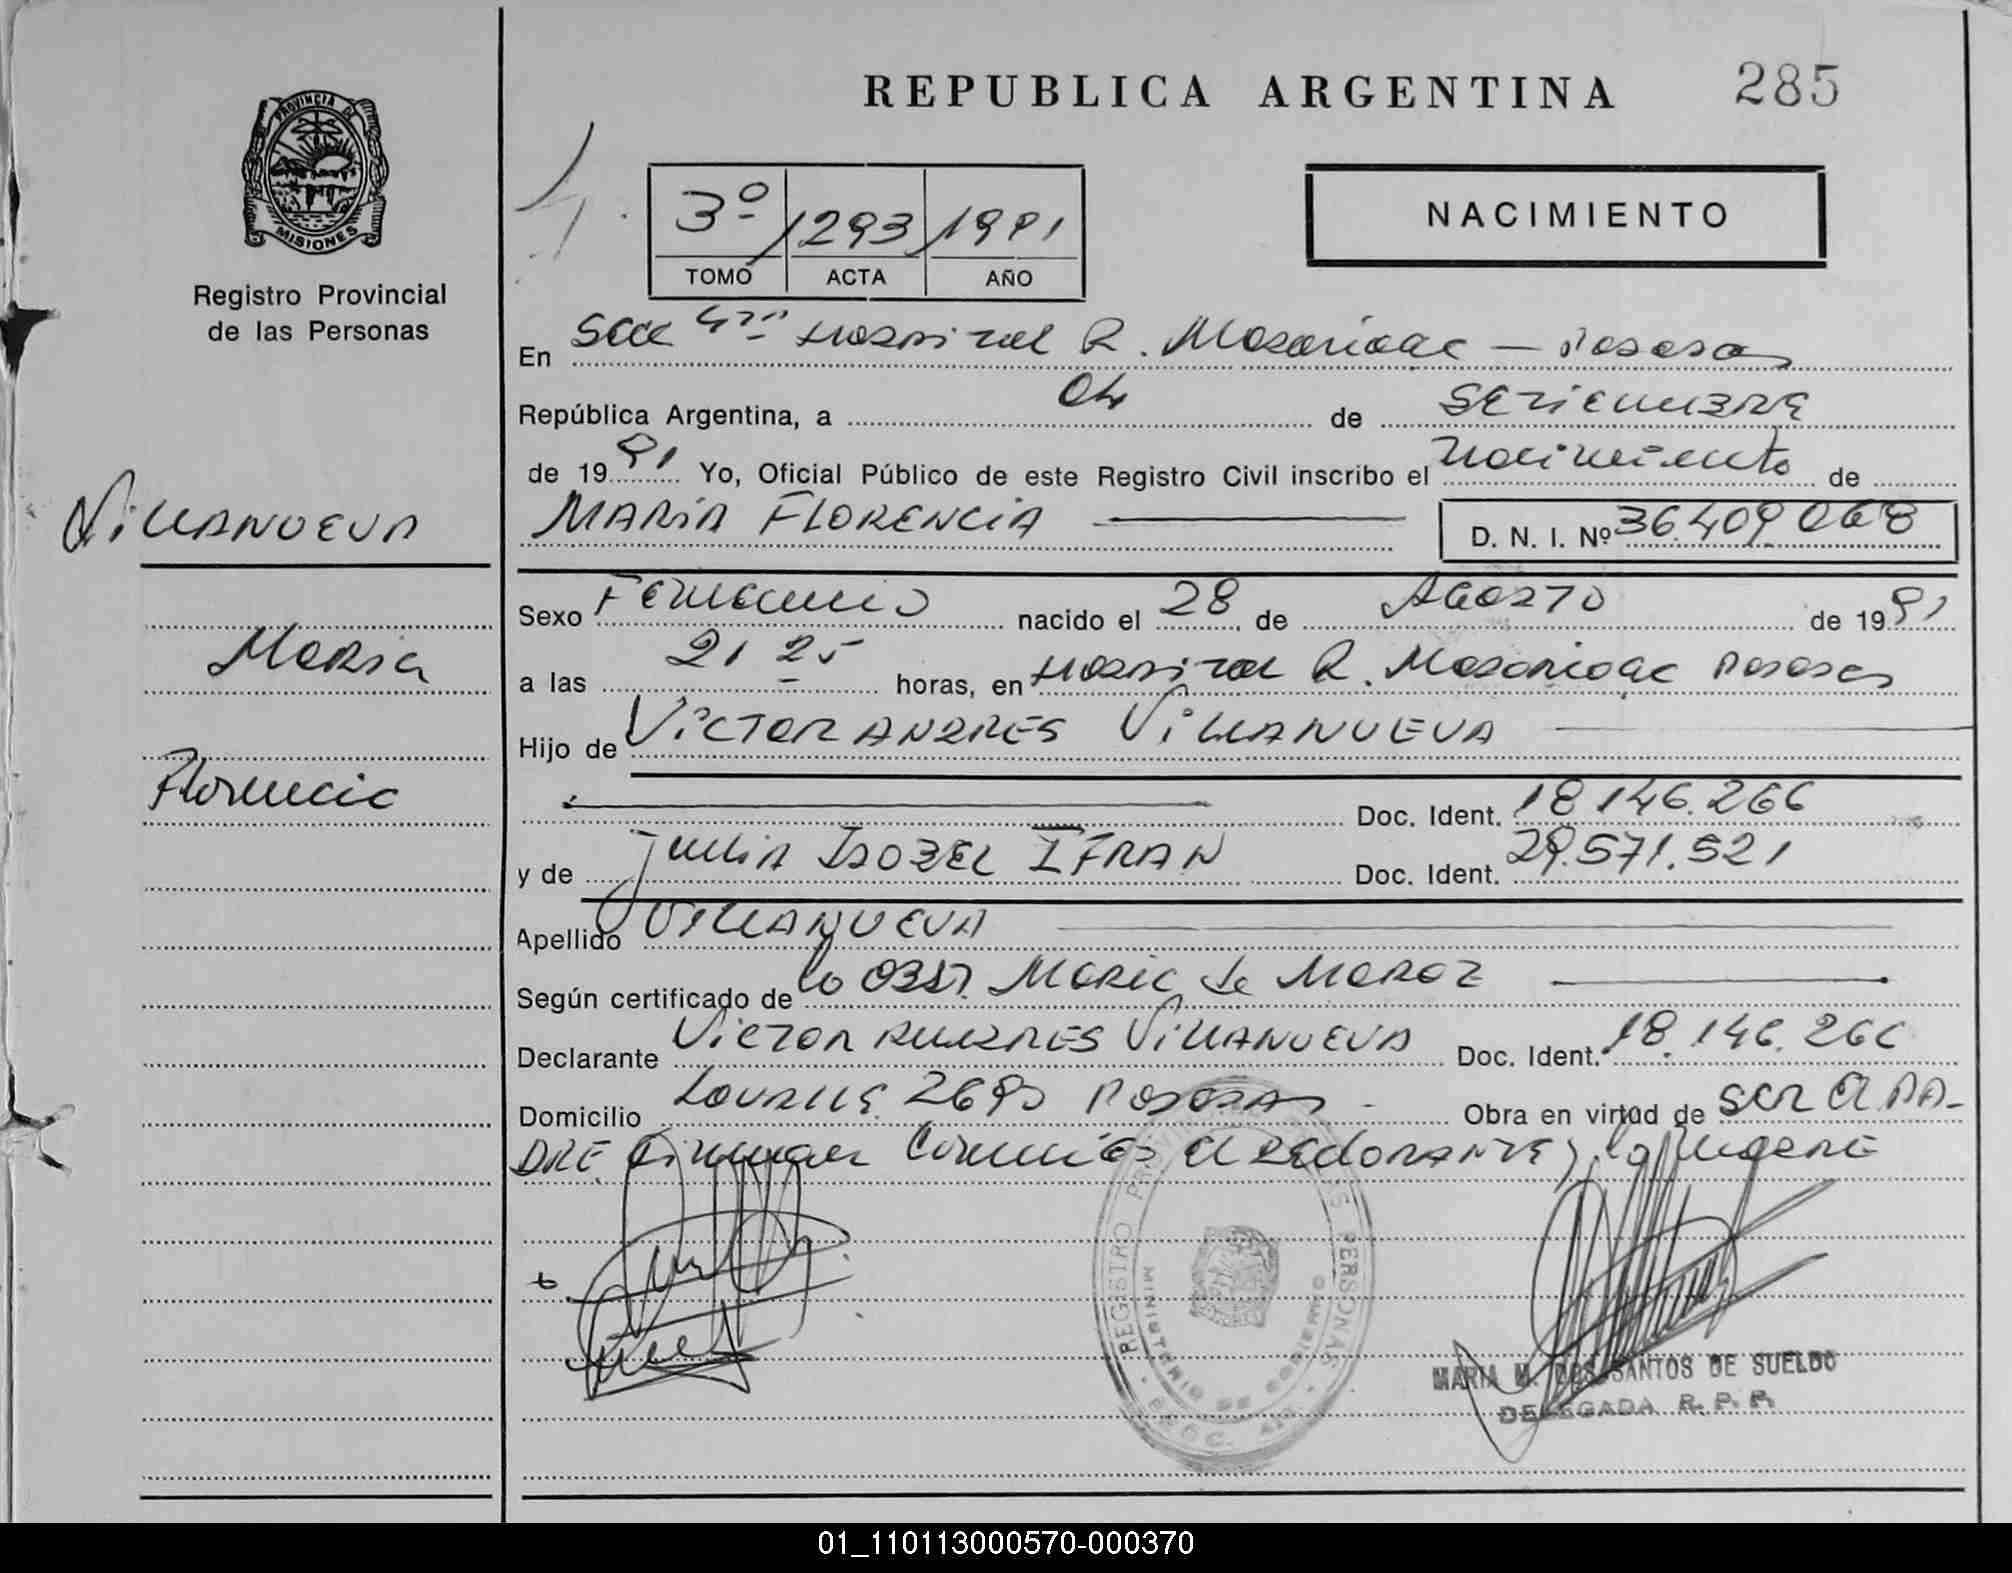 REPUBLICA ARGENTINA 285
PROVINCIA DE MISIONES
Registro Provincial
de las Personas
3º 1293 1991
TOMO ACTA AÑO
NACIMIENTO
En Secc 4ta Hospital R. Madariaga — Posadas
República Argentina, a 04 de SETIEMBRE
de 1991 Yo, Oficial Público de este Registro Civil inscribo el nacimiento de
VILLANUEVA
MARIA FLORENCIA
D. N. I. Nº 36.409.068
Sexo Femenino nacido el 28 de AGOSTO de 1991
Maria
a las 21 25 horas, en Hospital R. Madariaga Posadas
Hijo de VICTOR ANDRES VILLANUEVA
Florencia
Doc. Ident. 18.146.266
y de JULIA ISABEL IFRAN Doc. Ident. 29.571.521
Apellido VILLANUEVA
Según certificado de la OBST. Maria de
Declarante VICTOR ANDRES VILLANUEVA Doc. Ident. 18.146.266
Domicilio Posadas Obra en virtud de SER El PA-
DRE. Firman Conmigo el DEClARANTE y la MADRE
REGISTRO PROVINCIAL DE LAS PERSONAS
MINISTERIO DE GOBIERNO
MARIA M. DOS SANTOS DE SUELDO
DELEGADA R. P. P.
01_110113000570-000370